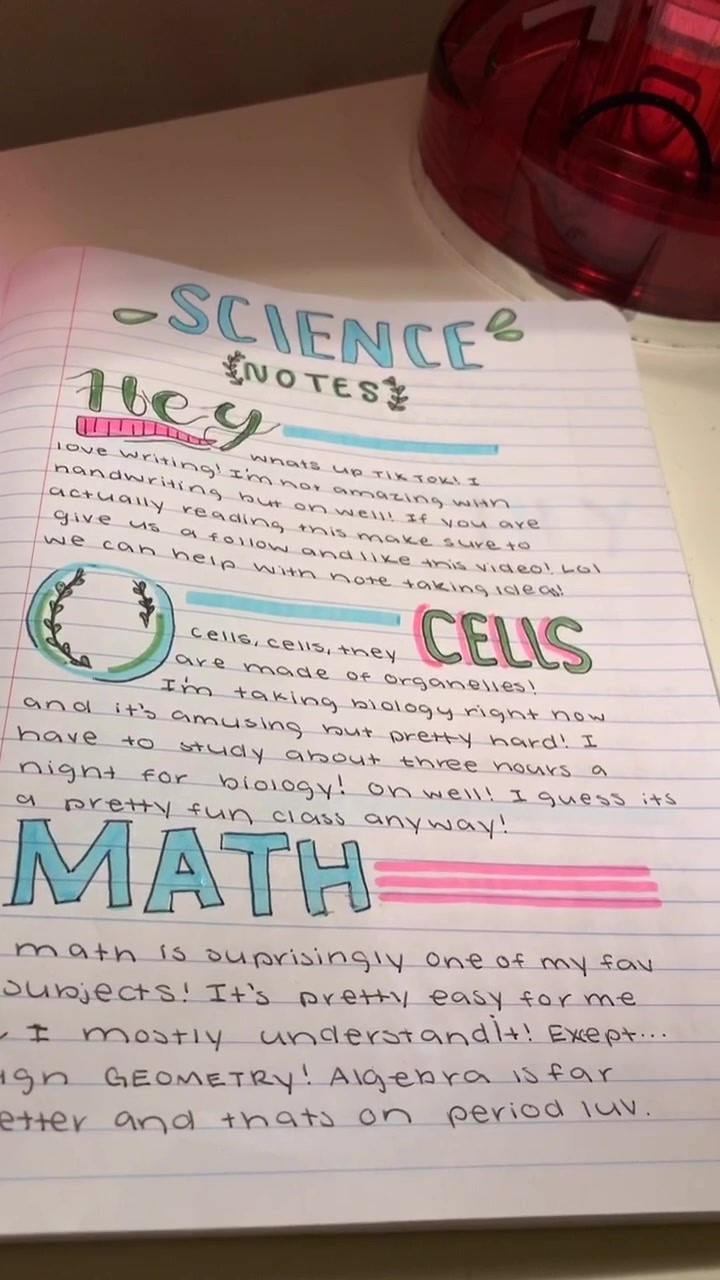 SCIENCE
NOTES
Hey
whats up TikTok! I
love writing! I'm not amazing with
handwriting but oh well! If you are
actually reading this make sure to
give us a follow and like this video! Lol
we can help with note taking ideas!
CELLS
cells, cells, they
are made of organelles!
I'm taking biology right now
and it's amusing but pretty hard! I
have to study about three hours a
night for biology! Oh well! I guess its
a pretty fun class anyway!
MATH
math is suprisingly one of my fav
subjects! It's pretty easy for me
I mostly understand it! Except...
ugh GEOMETRY! Algebra is far
etter and thats on period luv.